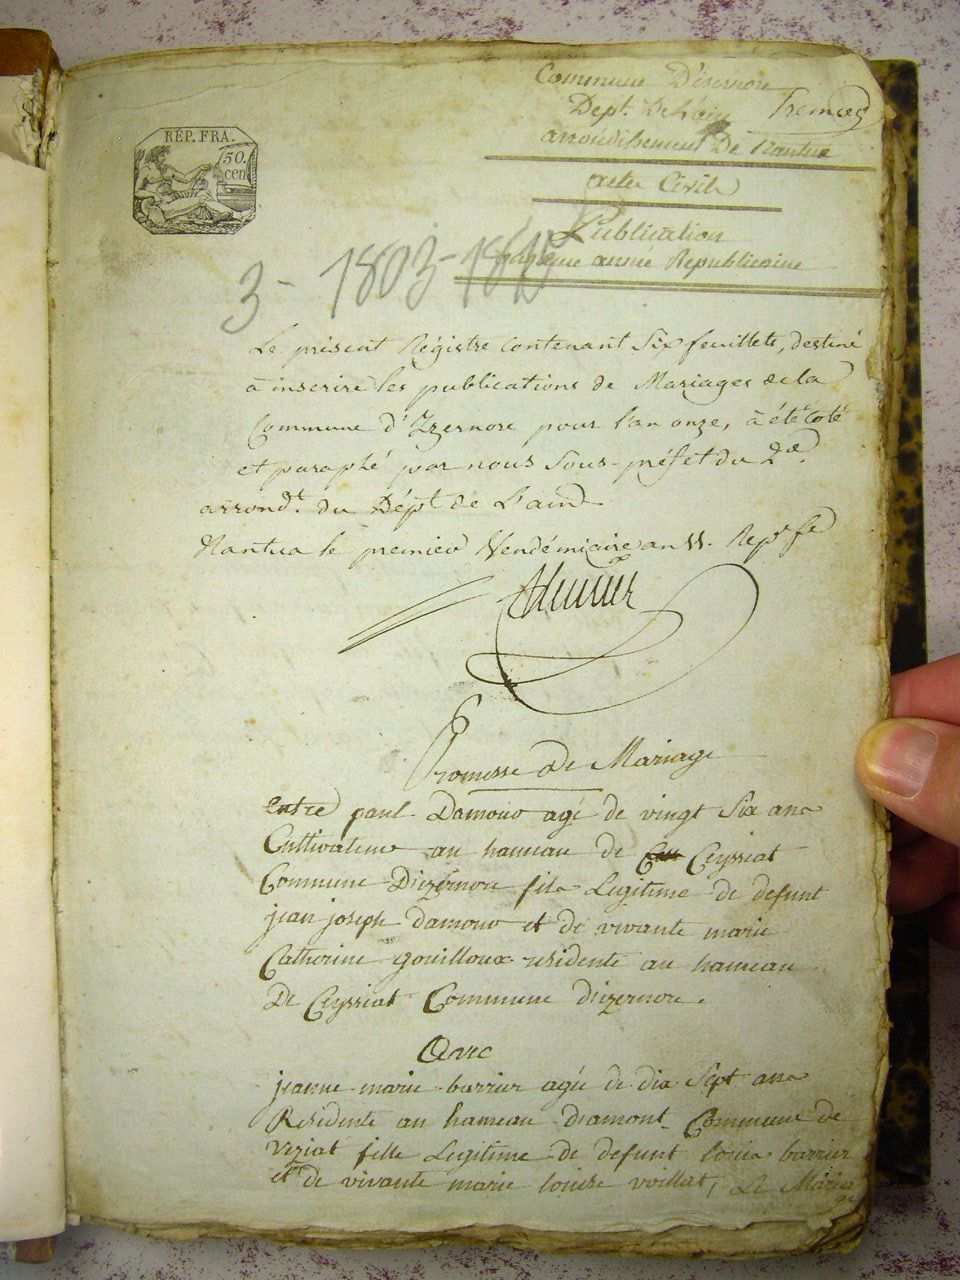 RÉP. FRA.
50.
cen
Commune D'izernore
Dept. De L'ain
arrondissement De Nantua
actes Civils
Publication
anné Républicaine
3 - 1803-1815
Le présent Régistre contenant Six feuillets, destiné
à inscrire les publications de Mariages de la
Commune d'Izernore pour l'an onze, à été coté
et paraphé par nous Sous-préfet du 2e.
arrondt. du Dépt de L'ain
Nantua le premier Vendémiaire an 11. Repe. fe
Promesse de Mariage
Entre paul Damour agé de vingt Six ans
Cultivateur au hameau de Ceyssiat
Commune D'izernore fils Legitime de defunt
jean joseph damour et de vivante marie
Catherine gouilloux residente au hameau
De Ceyssiat Commune d'izernore.
Avec
jeanne marie barrier agée de dix Sept ans
Residente au hameau d'amont Commune de
veziat fille Legitime de defunt louis barrier
et de vivante marie louise voillat, Le Maria
ge